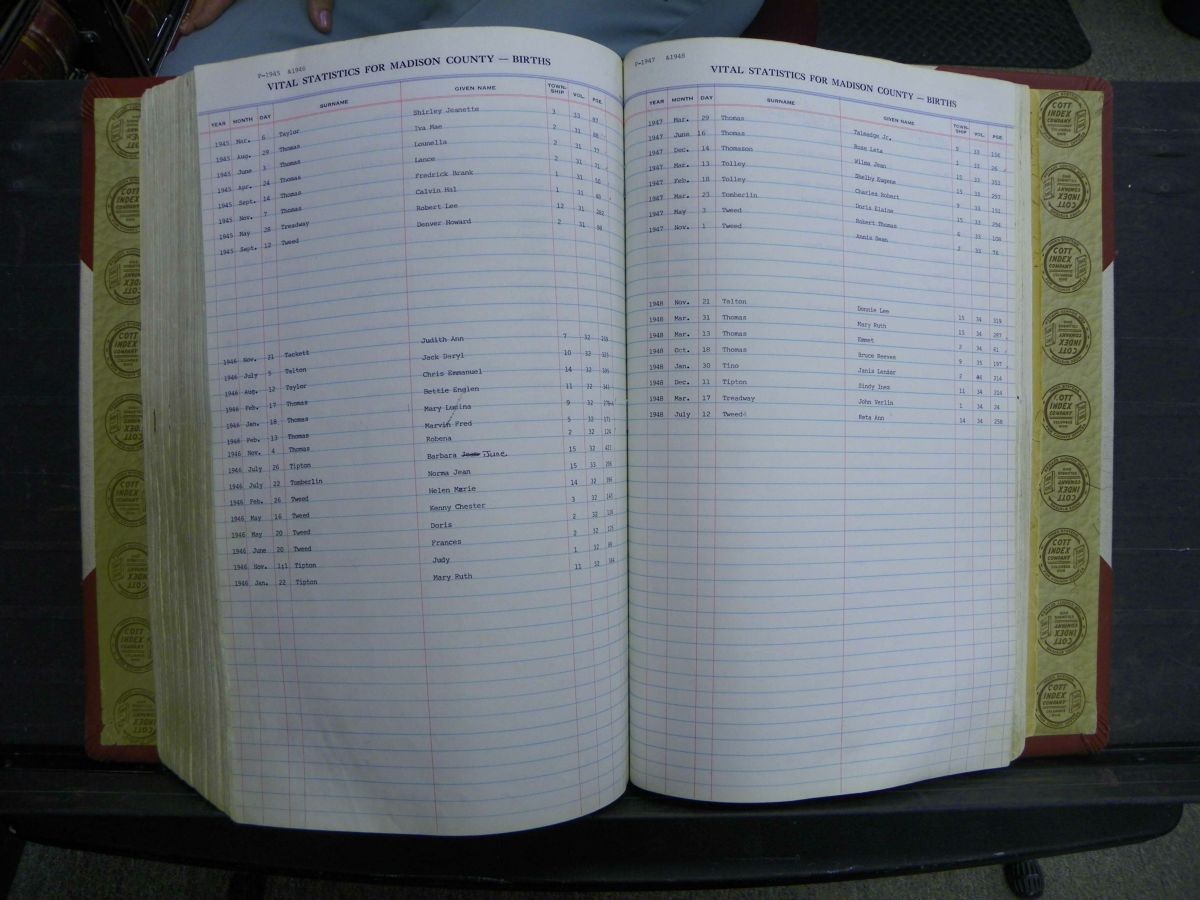 P-1945 &1946
VITAL STATISTICS FOR MADISON COUNTY — BIRTHS
YEAR MONTH DAY SURNAME GIVEN NAME TOWN-SHIP VOL. PGE.
1945 Mar. 6 Taylor Shirley Jeanette 3 33
1945 Aug. 29 Thomas Iva Mae 2 31
1945 June 3 Thomas Lounella 2 31 77
1945 Apr. 24 Thomas Lance 2 31
1945 Sept. 14 Thomas Fredrick Brank 1 31
1945 Nov. 7 Thomas Calvin Hal 1 31
1945 May 28 Treadway Robert Lee 12 31 282
1945 Sept. 12 Tweed Denver Howard 2 31
1946 Nov. 21 Tackett Judith Ann 7 32
1946 July 5 Talton Jack Daryl 10 32
1946 Aug. 12 Taylor Chris Emmanuel 14 32
1946 Feb. 17 Thomas Bettie Englen 11 32
1946 Jan. 18 Thomas Mary Lumina 9 32
1946 Feb. 13 Thomas Marvin Fred 5 32
1946 Nov. 4 Thomas Robena 2 32
1946 July 26 Tipton Barbara June 15 32
1946 July 22 Tomberlin Norma Jean 15 33
1946 Feb. 26 Tweed Helen Marie 14 32
1946 May 16 Tweed Kenny Chester 3 32
1946 May 20 Tweed Doris 2 32
1946 June 20 Tweed Frances 2 32
1946 Nov. 11 Tipton Judy 1 32
1946 Jan. 22 Tipton Mary Ruth 11 32
P-1947 &1948
VITAL STATISTICS FOR MADISON COUNTY — BIRTHS
YEAR MONTH DAY SURNAME GIVEN NAME TOWN-SHIP VOL. PGE.
1947 Mar. 29 Thomas Talmadge Jr. 9 33
1947 June 16 Thomas Rose Leta 1 33 26
1947 Dec. 14 Thomason Wilma Jean 15 33
1947 Mar. 13 Tolley Shelby Eugene 15 33 297
1947 Feb. 18 Tolley Charles Robert 9 33
1947 Mar. 23 Tomberlin Doris Elaine 15 33
1947 May 3 Tweed Robert Thomas 6 33 108
1947 Nov. 1 Tweed Annis Dean 2 33 76
1948 Nov. 21 Talton Donnie Lee 15 34 319
1948 Mar. 31 Thomas Mary Ruth 15 34 287
1948 Mar. 13 Thomas Emmet 2 34 61
1948 Oct. 18 Thomas Bruce Reeves 9 35 197
1948 Jan. 30 Tino Janis Lander 2 314
1948 Dec. 11 Tipton Sindy Inez 11 34 214
1948 Mar. 17 Treadway John Verlin 1 34 24
1948 July 12 Tweed Reta Ann 14 34 258
COTT INDEX COMPANY
COLUMBUS OHIO